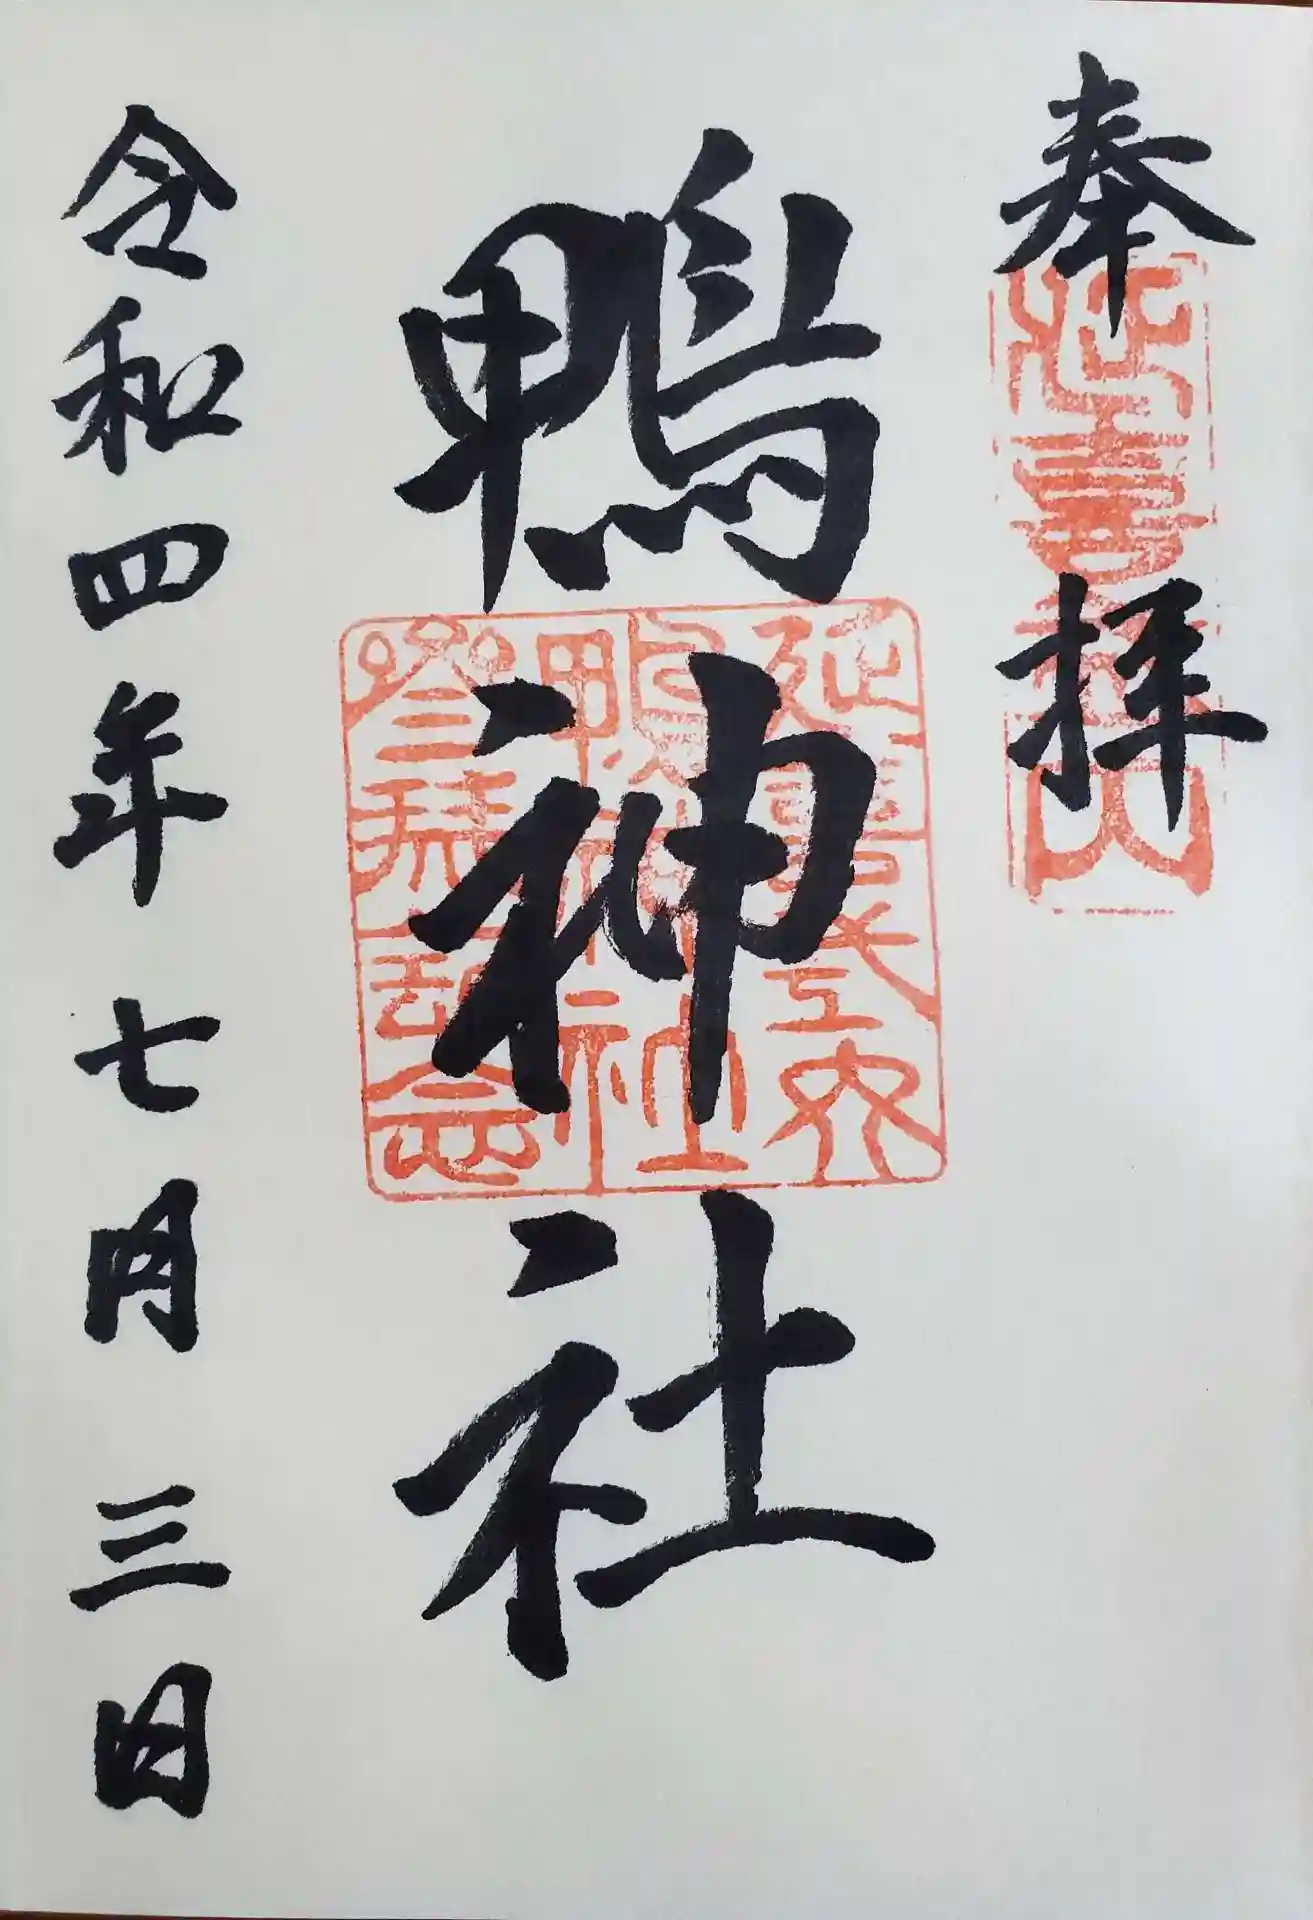 奉拝
延喜式内
鴨神社
延喜式内
鴨神社
参拝記念
令和四年七月三日